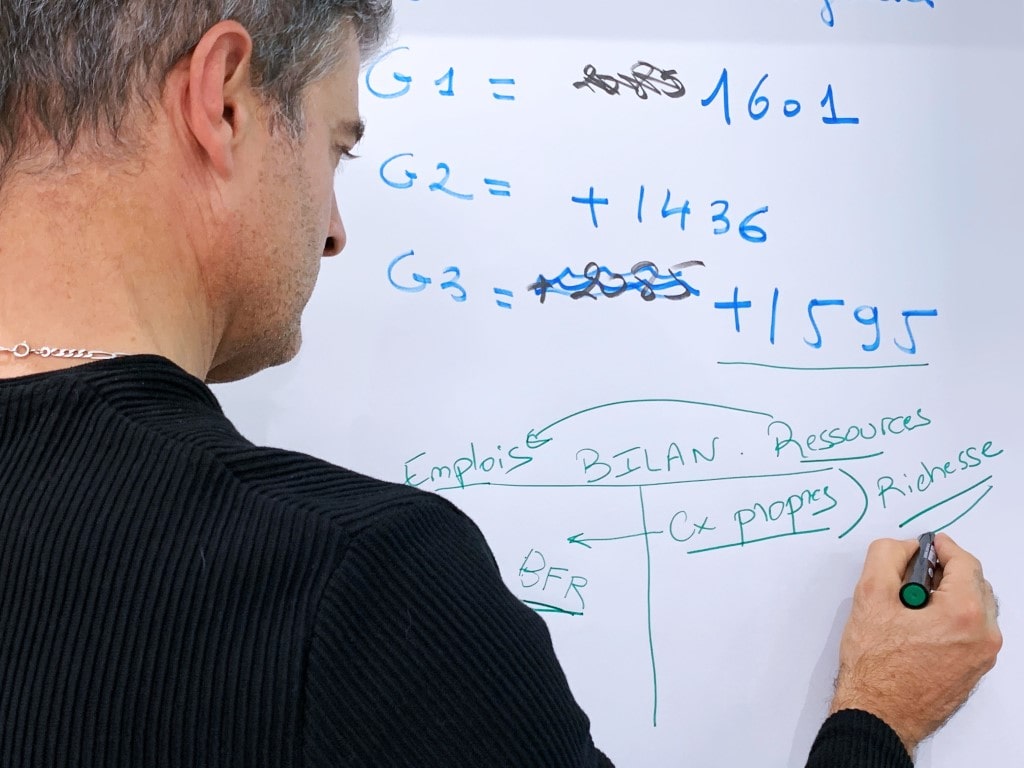 G1 = 1601
G2 = +1436
G3 = +2085 +1595
Emplois BILAN. Ressources
Cx propres) Richesse
BFR